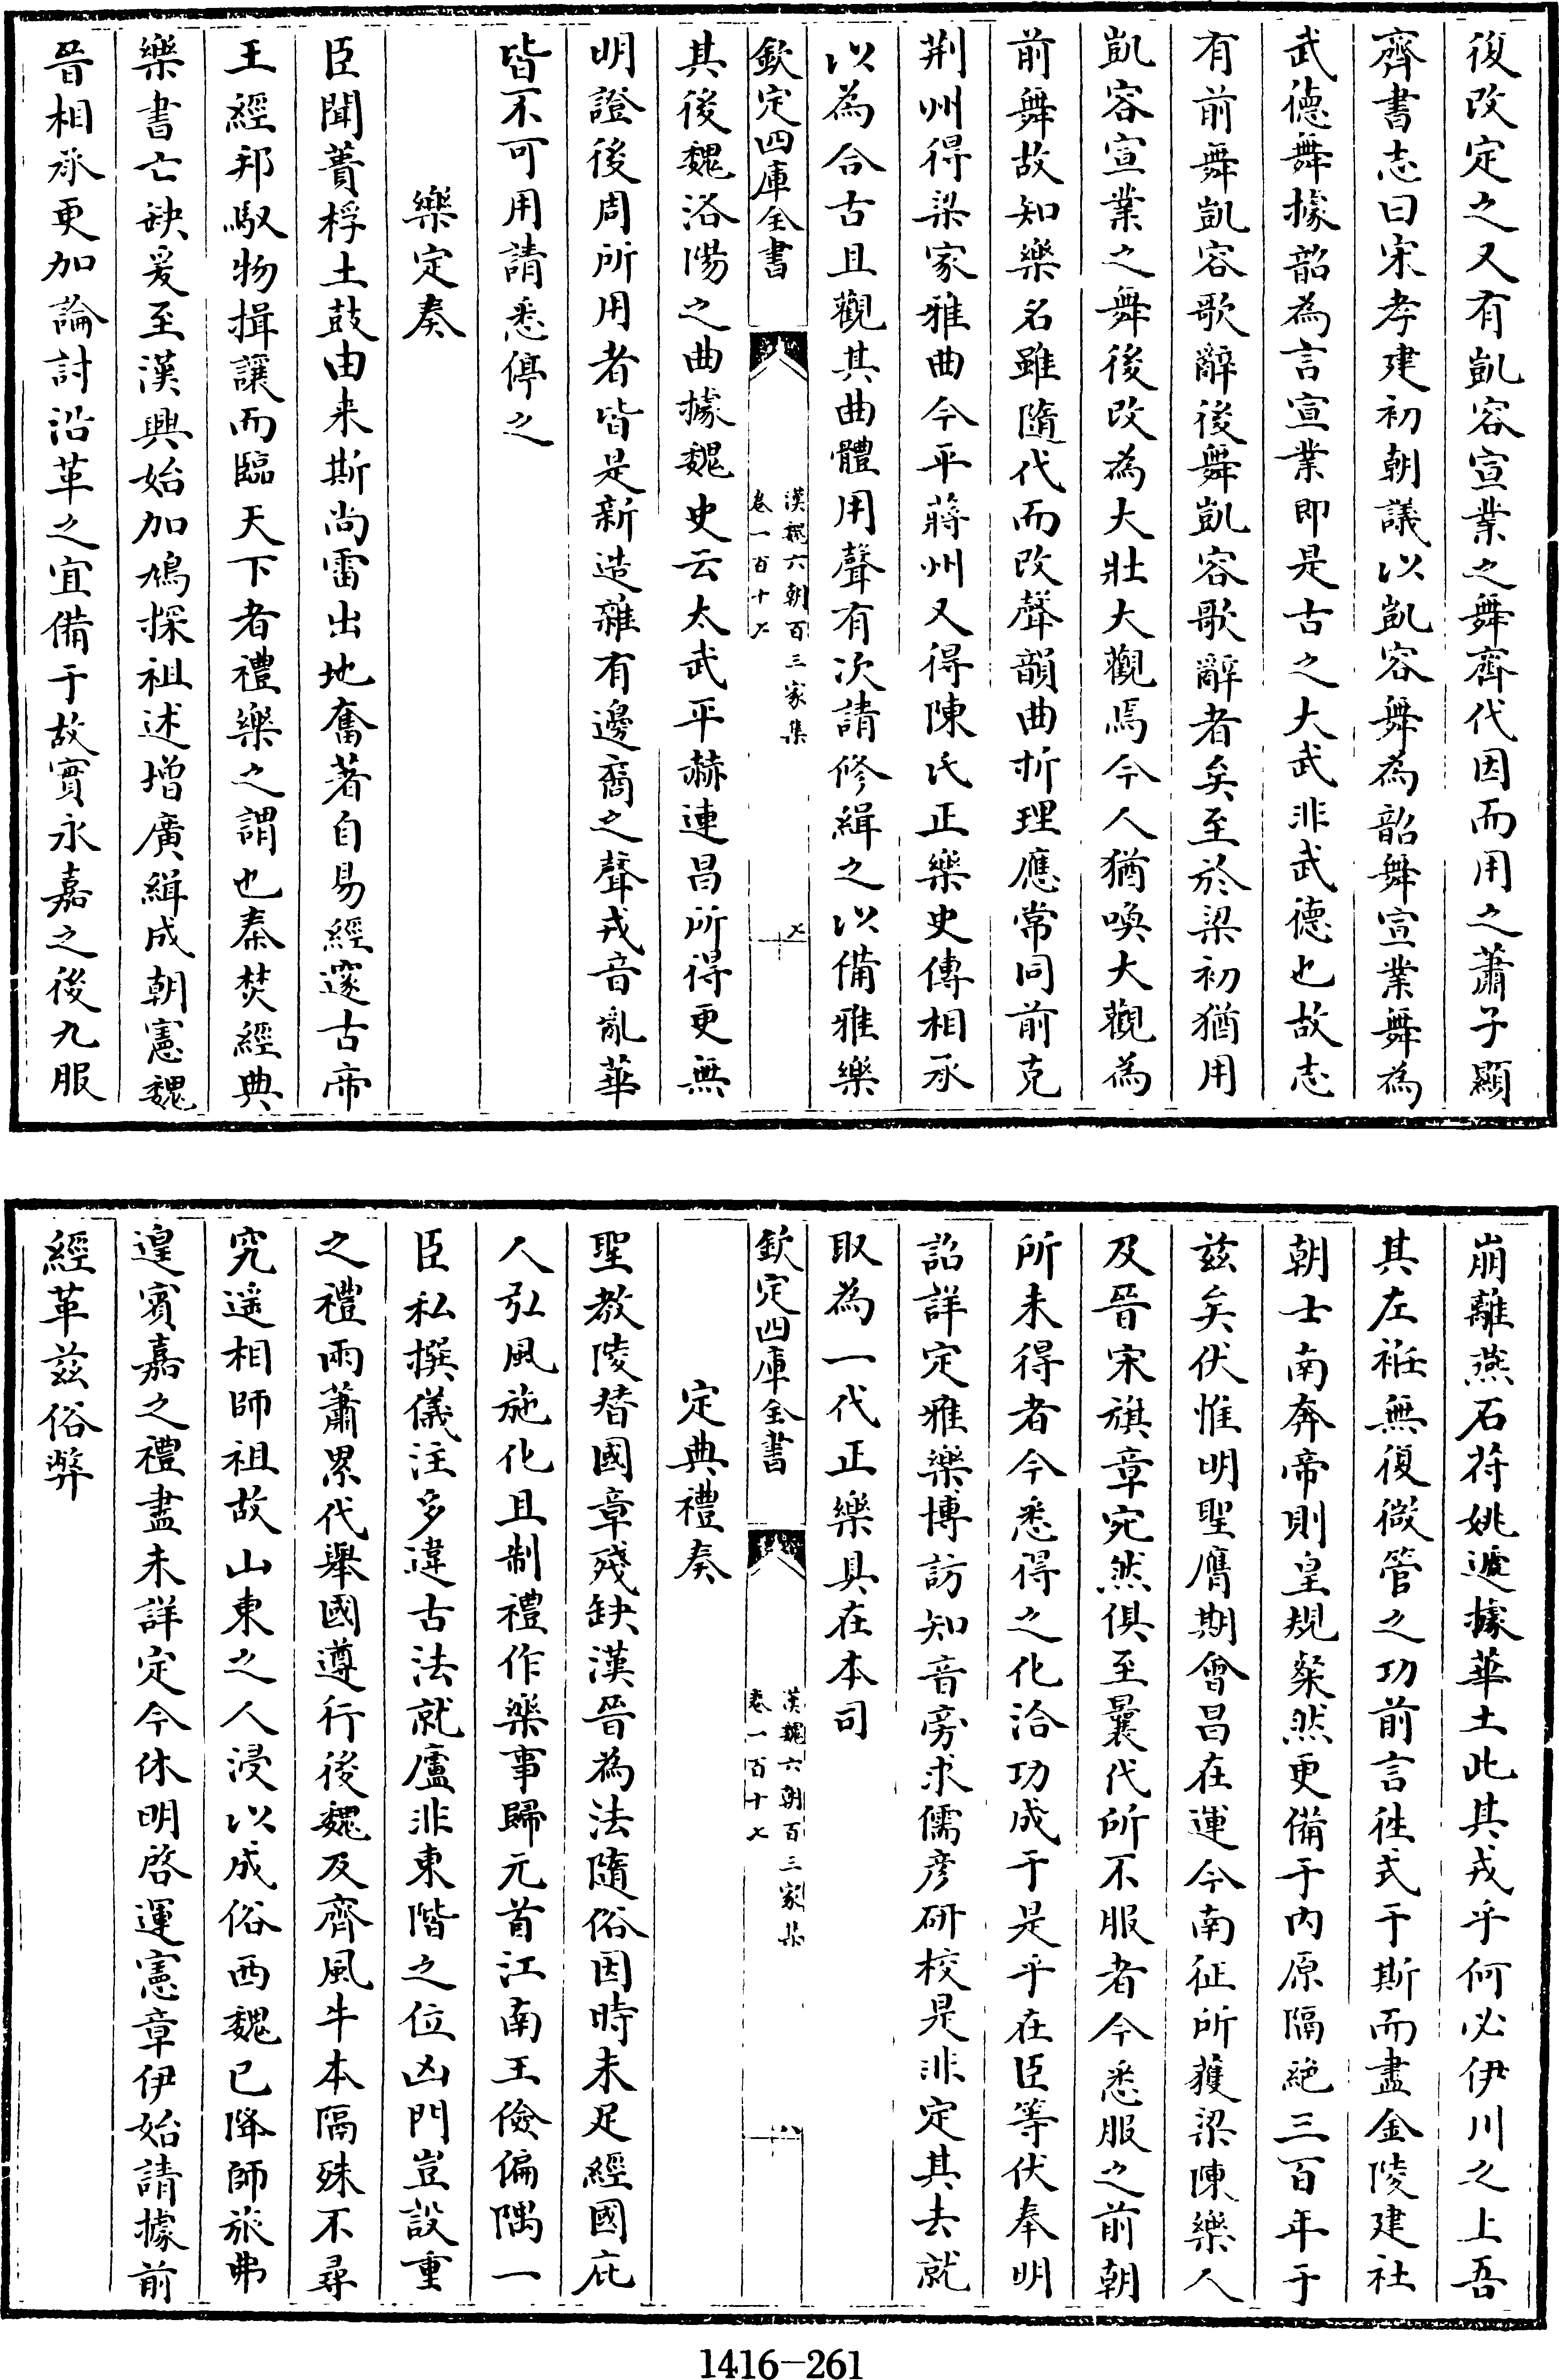 復改定之又有凱容宣業之舞齊代因而用之蕭子顯
齊書志曰宋孝建初朝議以凱容舞為韶舞宣業舞為
武德舞據韶為言宣業即是古之大武非武德也故志
有前舞凱容歌辭後舞凱容歌辭者矣至於梁初猶用
凱容宣業之舞後改為大壯大觀焉今人猶喚大觀為
前舞故知樂名雖隨代而改聲韻曲折理應常同前克
荆州得梁家雅曲今平蔣州又得陳氏正樂史傳相承
以為合古且觀其曲體用聲有次請修緝之以備雅樂
欽定四庫全書
漢魏六朝百三家集
卷一百十七
七
其後魏洛陽之曲據魏史云太武平赫連昌所得更無
明證後周所用者皆是新造雜有邊裔之聲戎音亂華
皆不可用請悉停之
樂定奏
臣聞蕢桴土鼓由来斯尚雷出地奮著自易經邃古帝
王經邦馭物揖讓而臨天下者禮樂之謂也秦焚經典
樂書亡缺爰至漢興始加鳩採祖述增廣緝成朝憲魏
晉相承更加論討沿革之宜備于故實永嘉之後九服
崩離燕石苻姚遞據華土此其戎乎何必伊川之上吾
其左袵無復微管之功前言徃式于斯而盡金陵建社
朝士南奔帝則皇規粲然更備于內原隔絶三百年于
兹矣伏惟明聖膺期會昌在運今南征所獲梁陳樂人
及晉宋旗章宛然俱至曩代所不服者今悉服之前朝
所未得者今悉得之化洽功成于是乎在臣等伏奉明
詔詳定雅樂博訪知音旁求儒彥研校是非定其去就
取為一代正樂具在本司
欽定四庫全書
漢魏六朝百三家集
卷一百十七
八
定典禮奏
聖教陵替國章殘缺漢晉為法隨俗因時未足經國庇
人弘風施化且制禮作樂事歸元首江南王儉偏隅一
臣私撰儀注多違古法就廬非東階之位凶門豈設重
之禮兩蕭累代舉國遵行後魏及齊風牛本隔殊不尋
究遥相師祖故山東之人浸以成俗西魏已降師旅弗
遑賓嘉之禮盡未詳定今休明啓運憲章伊始請據前
經革兹俗弊
1416-261